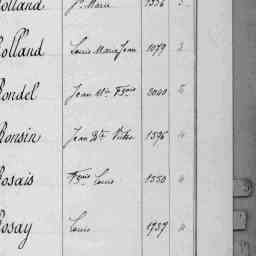 Rolland Jn Marie 1336 3
Rolland Louis Marie Jean 1079 3
Rondel Jean Mie Fçois 2040 5
Ronsin Jean Bte Victor 1596 4
Rosais Fçois Louis 1550 4
Rosay Louis 1757 4